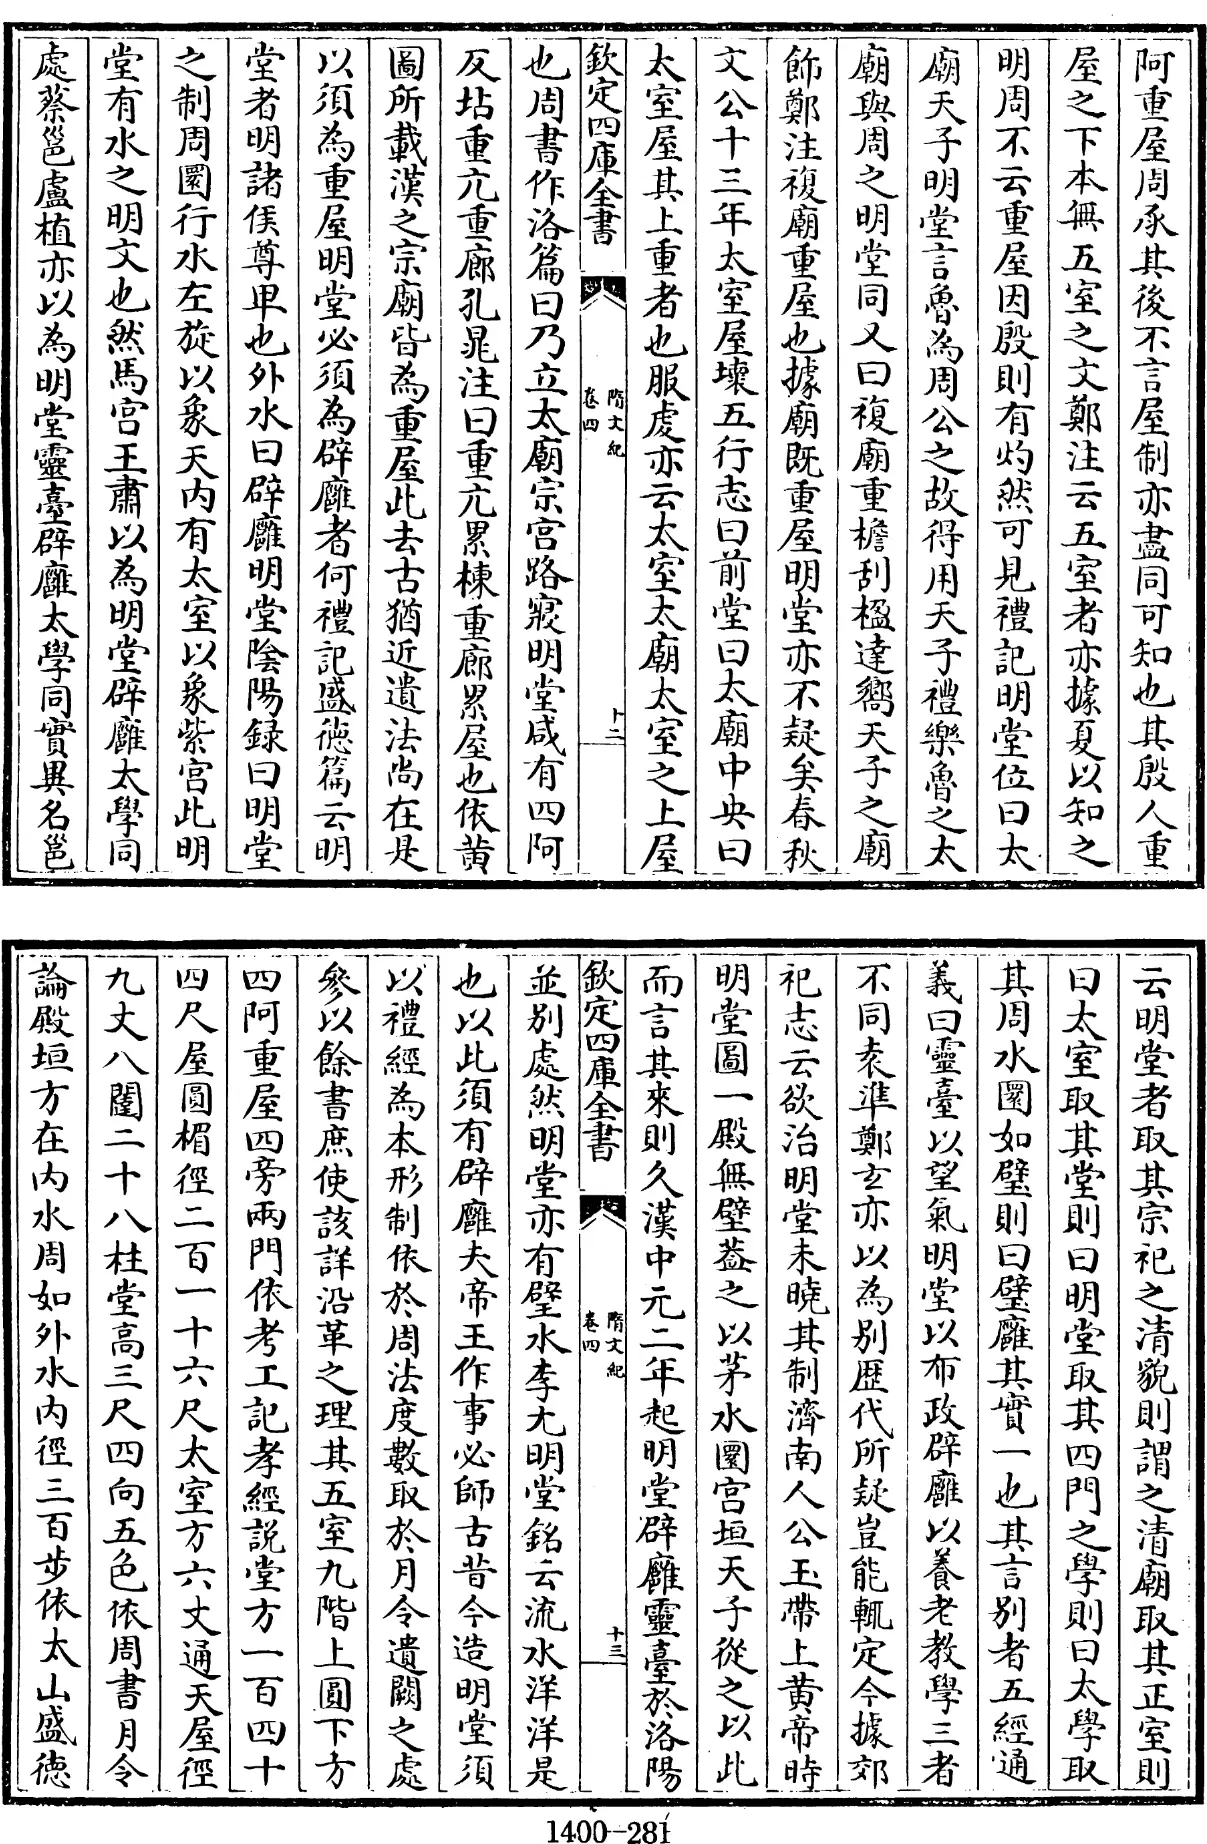 阿重屋周承其後不言屋制亦盡同可知也其殷人重
屋之下本無五室之文鄭注云五室者亦據夏以知之
明周不云重屋因殷則有灼然可見禮記明堂位曰太
廟天子明堂言魯為周公之故得用天子禮樂魯之太
廟與周之明堂同又曰複廟重檐刮楹達嚮天子之廟
飾鄭注複廟重屋也據廟既重屋明堂亦不疑矣春秋
文公十三年太室屋壞五行志曰前堂曰太廟中央曰
太室屋其上重者也服虔亦云太室太廟太室之上屋
欽定四庫全書
隋文紀
卷四
十二
也周書作洛篇曰乃立太廟宗宫路寢明堂咸有四阿
反坫重亢重廊孔晁注曰重亢累棟重廊累屋也依黄
圖所載漢之宗廟皆為重屋此去古猶近遺法尚在是
以須為重屋明堂必須為辟廱者何禮記盛徳篇云明
堂者明諸侯尊卑也外水曰辟廱明堂陰陽録曰明堂
之制周圜行水左旋以象天内有太室以象紫宫此明
堂有水之明文也然馬宫王肅以為明堂辟廱太學同
處蔡邕盧植亦以為明堂靈臺辟廱太學同實異名邕
云明堂者取其宗祀之清貌則謂之清廟取其正室則
曰太室取其堂則曰明堂取其四門之學則曰太學取
其周水圜如璧則曰璧廱其實一也其言別者五經通
義曰靈臺以望氣明堂以布政辟廱以養老教學三者
不同袁準鄭玄亦以為別歴代所疑豈能輒定今據郊
祀志云欲治明堂未曉其制濟南人公玉帶上黄帝時
明堂圖一殿無壁葢之以茅水圜宫垣天子從之以此
而言其來則久漢中元二年起明堂辟廱靈臺於洛陽
欽定四庫全書
隋文紀
卷四
十三
並别處然明堂亦有璧水李尤明堂銘云流水洋洋是
也以此須有辟廱夫帝王作事必師古昔今造明堂須
以禮經為本形制依於周法度數取於月令遺闕之處
參以餘書庶使該詳沿革之理其五室九階上圓下方
四阿重屋四旁兩門依考工記孝經説堂方一百四十
四尺屋圓楣徑二百一十六尺太室方六丈通天屋徑
九丈八闥二十八柱堂高三尺四向五色依周書月令
論殿垣方在内水周如外水内徑三百步依太山盛徳
1400-281